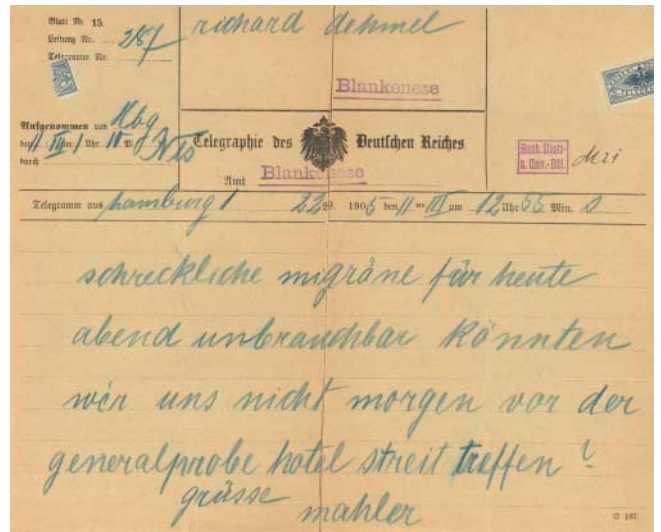 Blatt Nr. 15.
Leitung Nr. 287
Telegramm Nr.
richard dehmel
Blankenese
Aufgenommen von Hbg
den 11/III um 1 Uhr 10 M.
durch
Telegraphie des Deutschen Reiches.
Amt Blankenese
Hamb. Staats-
u. Univ.-Bibl.
Telegramm aus hamburg 1 22 1905 den 11ten III um 12 Uhr 55 Min.
schreckliche migräne für heute
abend unbrauchbar könnten
wir uns nicht morgen vor der
generalprobe hotel streit treffen?
grüsse
mahler
C 187